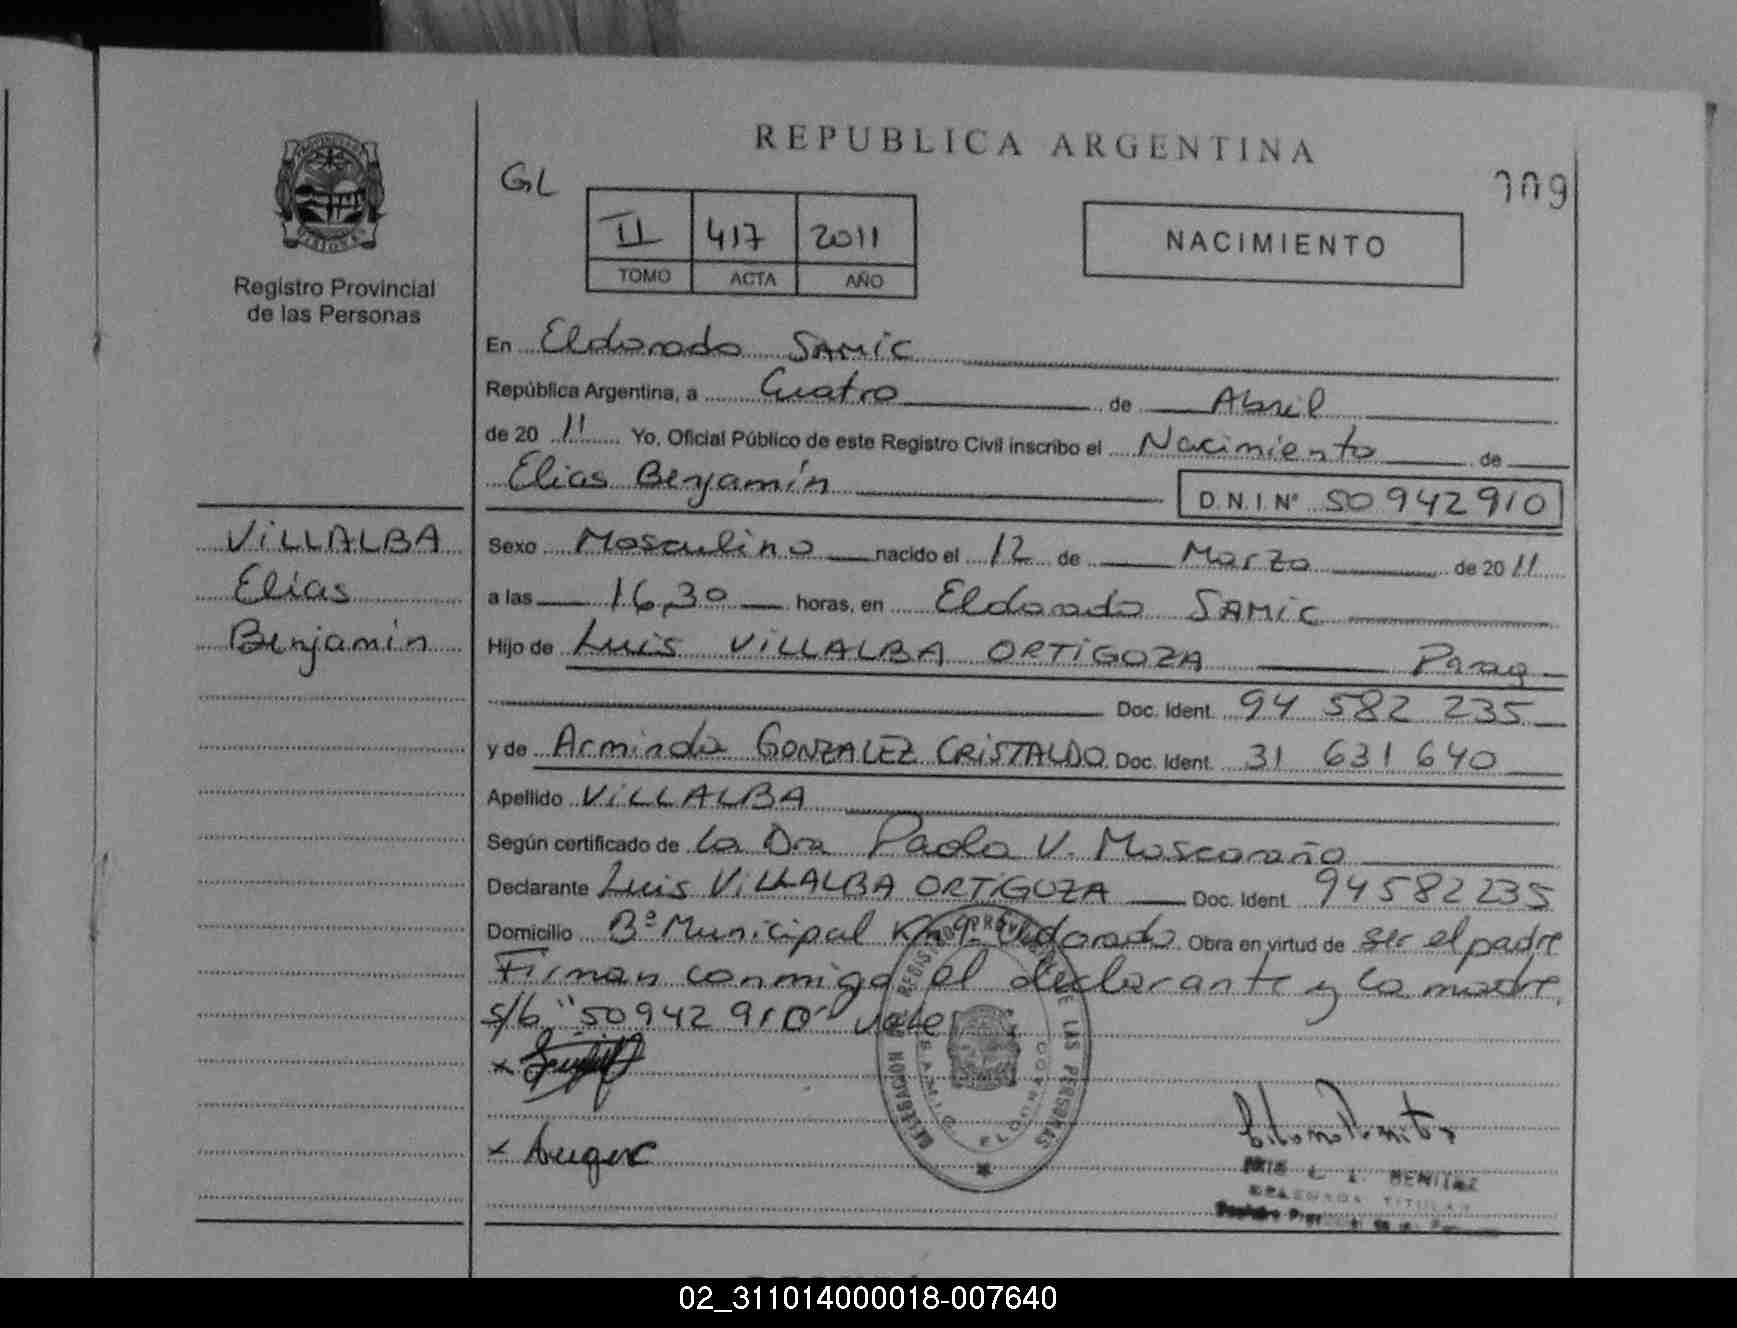 REPUBLICA ARGENTINA
GL
709
II 417 2011
TOMO ACTA AÑO
NACIMIENTO
Registro Provincial
de las Personas
En Eldorado SAMIC
República Argentina, a Cuatro de Abril
de 2011 Yo, Oficial Público de este Registro Civil inscribo el Nacimiento de
Elias Benjamín
D.N.I. Nº 50942910
VILLALBA
Elias
Benjamín
Sexo Masculino nacido el 12 de Marzo de 2011
a las 16,30 horas, en Eldorado SAMIC
Hijo de Luis VILLALBA ORTIGOZA Parag
Doc. Ident. 94 582 235
y de Arminda GONZALEZ CRISTALDO Doc. Ident. 31 631 640
Apellido VILLALBA
Según certificado de la Dra Paola V. Moscaraño
Declarante Luis VILLALBA ORTIGOZA Doc. Ident. 94582235
Domicilio Bº Municipal Km 9 Eldorado Obra en virtud de ser el padre
Firman conmigo el declarante y la madre,
s/b "50942910" vale
x
x
DE LAS PERSONAS
BENITEZ
TITULAR
02_311014000018-007640